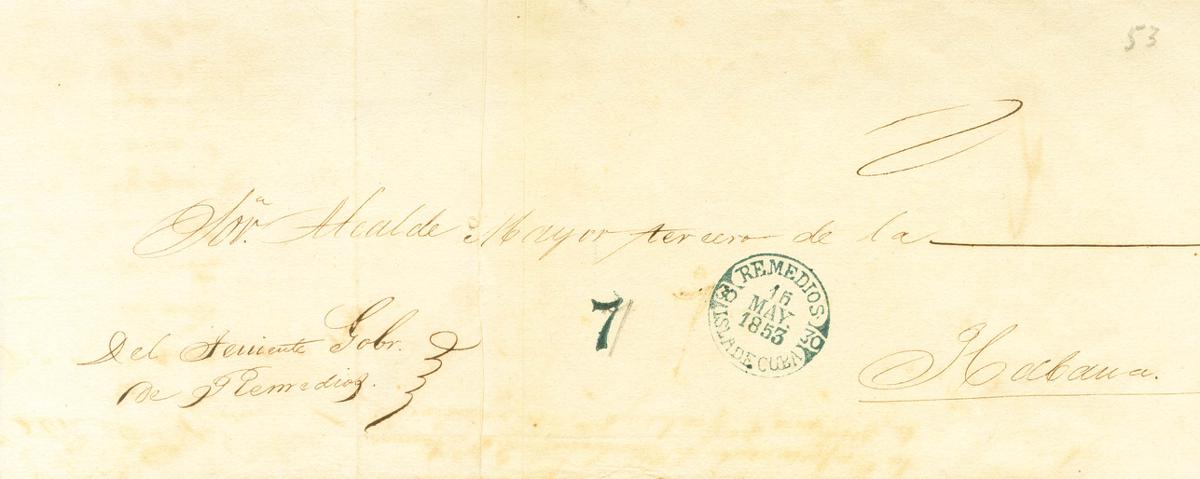 53
Sor. Alcalde Mayor tercero de la
Habana.
Del Teniente Gobr.
de Remedios.
7
REMEDIOS
15
MAY.
1853
ISLA DE CUBA
30